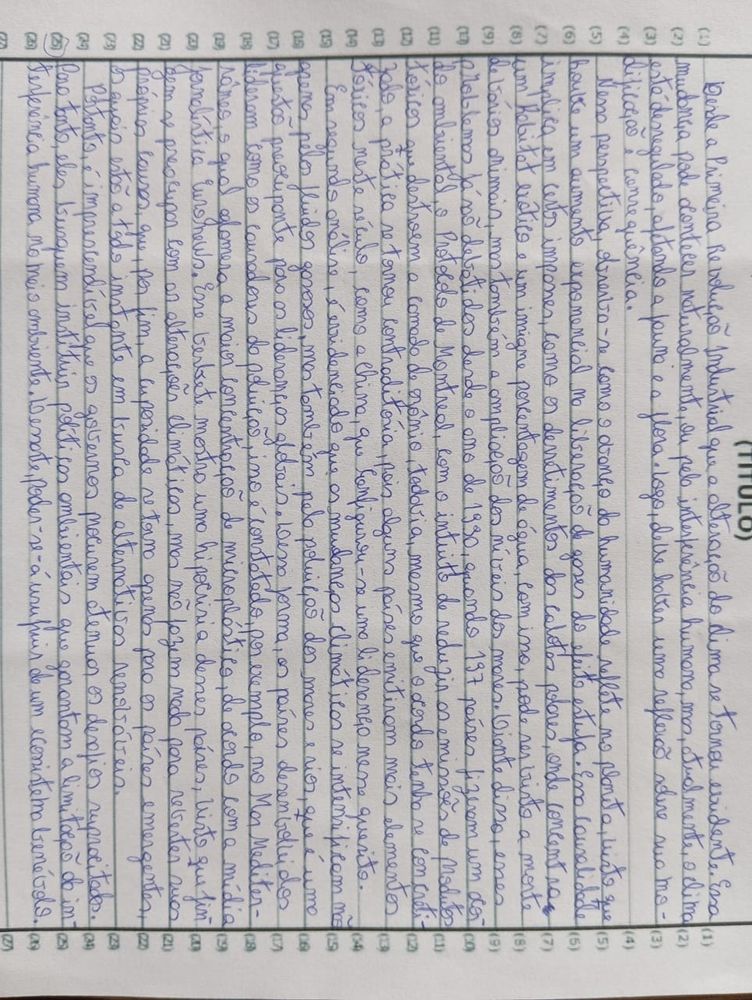 (TÍTULO)
(1) Desde a Primeira Revolução Industrial que a alteração do clima se tornou evidente. Essa (1)
(2) mudança pode acontecer naturalmente, ou pela interferência humana, mas, atualmente, o clima (2)
(3) está desregulado, afetando a fauna e a flora. Logo, deve haver uma reflexão sobre sua mo- (3)
(4) dificação e consequência. (4)
(5) Nessa perspectiva, observa-se como o avanço da humanidade reflete no planeta, visto que (5)
(6) houve um aumento exponencial na liberação de gases do efeito estufa. Essa causalidade (6)
(7) implica em certos impasses, como os derretimentos das calotas polares, onde concentra (7)
(8) um habitat exótico e um insigne porcentagem de água, com isso, pode ser visto a morte (8)
(9) de vários animais, mas também a ampliação dos níveis dos mares. Diante disso, esses (9)
(10) problemas já são debatidos desde o ano de 1990, quando 197 países fizeram um acor- (10)
(11) do ambiental, o Protocolo de Montreal, com o intuito de reduzir as emissões de produtos (11)
(12) tóxicos que destroem a camada de ozônio, todavia, mesmo que o acordo tenha se concreti- (12)
(13) zado, a prática se tornou contraditória, pois alguns países emitiram mais elementos (13)
(14) tóxicos neste século, como a China, que configurou-se uma liderança nesse quesito. (14)
(15) Em segunda análise, é evidenciado que as mudanças climáticas se intensificam não (15)
(16) apenas pelos fluidos gasosos, mas também pela poluição dos mares e rios, que é uma (16)
(17) questão preocupante para as lideranças globais. Dessa forma, os países desenvolvidos (17)
(18) lideram como os causadores da poluição, isso é constatado, por exemplo, no Mar Mediter- (18)
(19) râneo, o qual aglomera a maior concentração de microplástico, de acordo com a mídia (19)
(20) jornalística Euronews. Esse verbete mostra uma hipocrisia desses países, visto que fin- (20)
(21) gem a preocupar com as alterações climáticas, mas não fazem nada para reverter suas (21)
(22) próprias causas, que, por fim, a cupidade se torna apenas para os países emergentes, (22)
(23) os quais estão a todo instante em busca de alternativas renováveis. (23)
(24) Portanto, é imprescindível que os governos procurem atenuar os desafios supracitados. (24)
(25) Para tanto, eles busquem instituir políticas ambientais que garantam a limitação da in- (25)
(26) terferência humana no meio ambiente. Destarte, poder-se-á usufruir de um ecossistema benévolo. (26)
(27) (27)